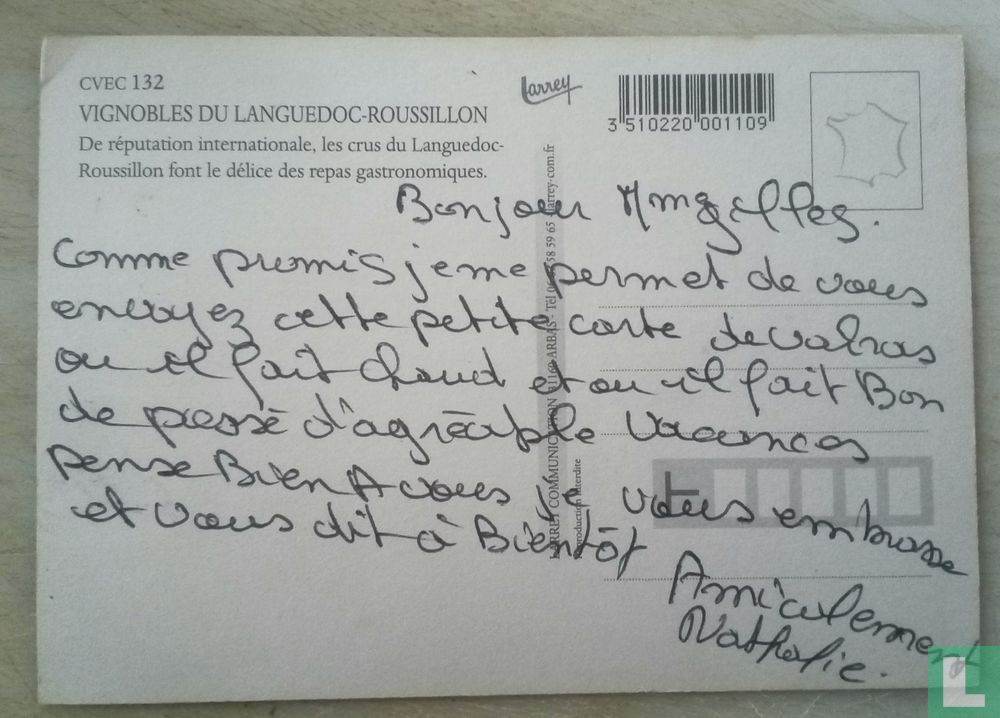 CVEC 132
VIGNOBLES DU LANGUEDOC-ROUSSILLON
De réputation internationale, les crus du Languedoc-
Roussillon font le délice des repas gastronomiques.
Larrey
3 510220 001109
Bonjour
Comme promis je me permet de vous
envoyez cette petite carte de valras
ou il fait chaud et ou il fait Bon
de passé d'agréable Vacances
pense Bien A vous Je vous embrasse
et vous dit à Bientôt
Amicalement
Nathalie.
LARREY COMMUNICATION ARBAS - Tél 58 59 65 larrey-com.fr
Reproduction interdite
L